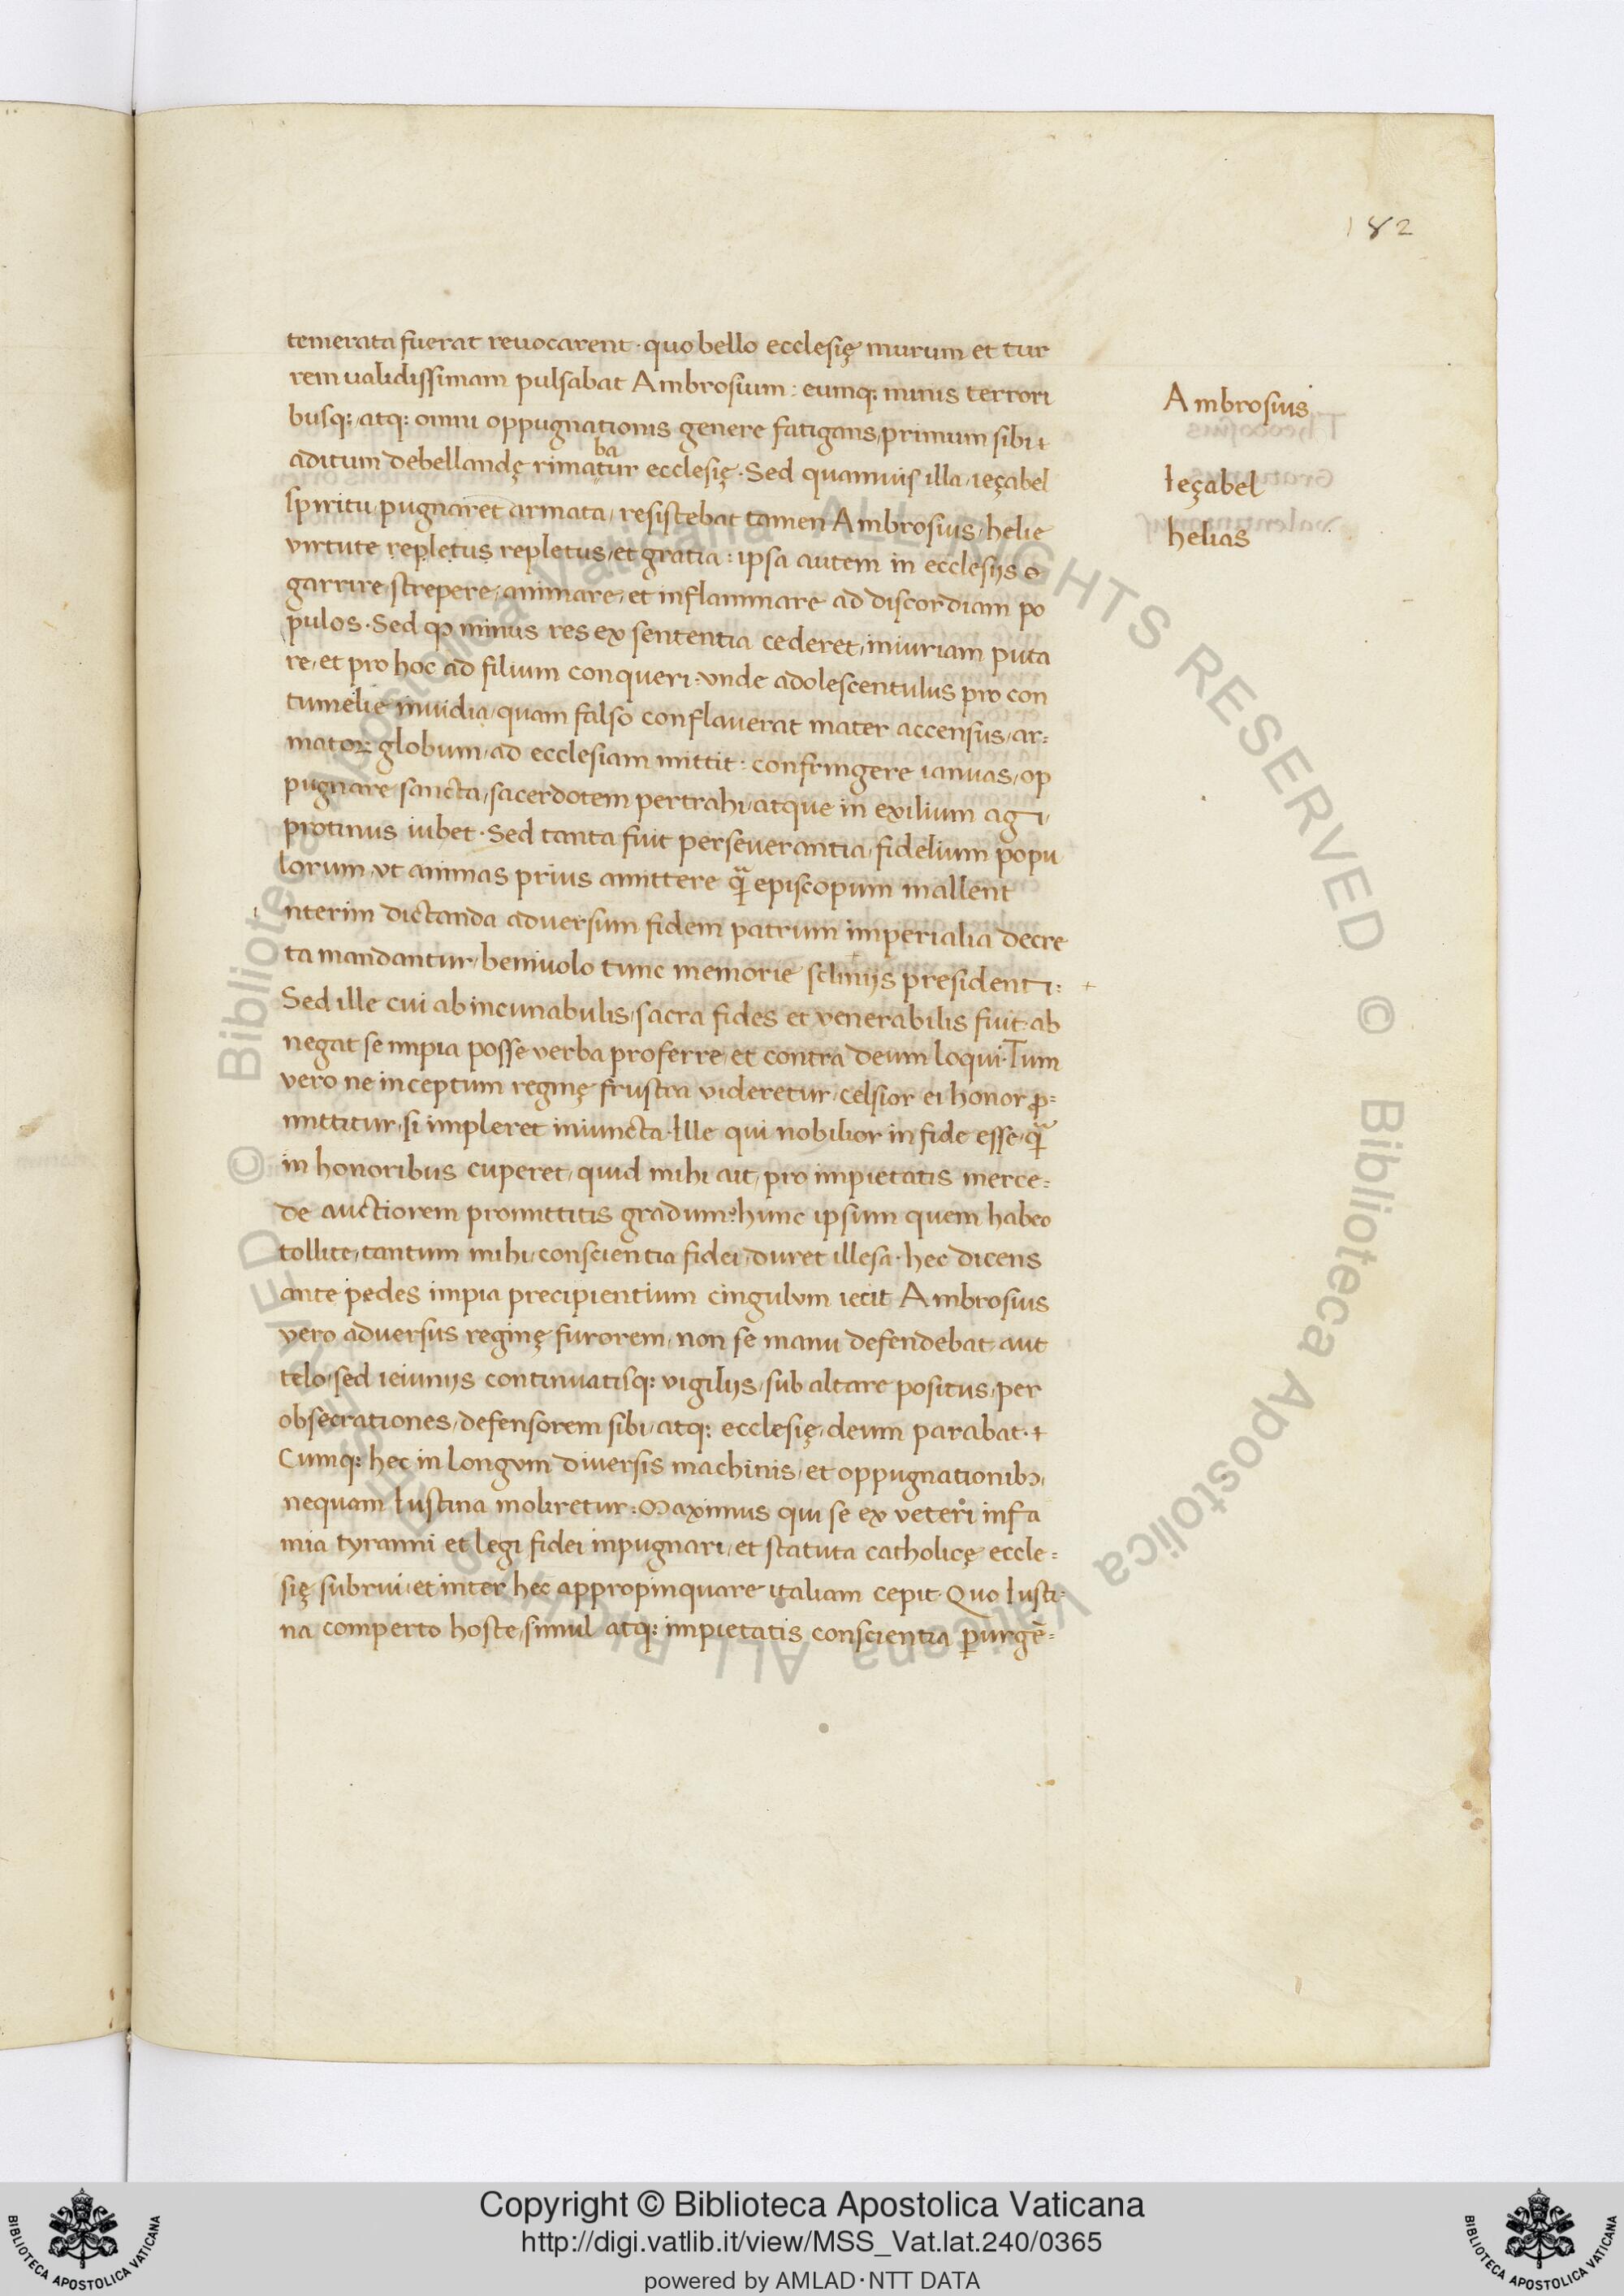 182
temerata fuerat reuocarent · quo bello ecclesię murum et tur
rem ualidissimam pulsabat Ambrosium : eumq; minis terrori
busq; atq; omni oppugnationis genere fatigans, primum sibi
aditum debellandę rimatur ecclesię · Sed quamuis illa, ieçabel
ba
spiritu, pugnaret armata, resistebat tamen Ambrosius, helie
virtute repletus repletus, et gratia : ipsa autem in ecclesijs
garrire, strepere, animare, et inflammare ad discordiam po
pulos · Sed minus res ex sententia cederet, iniuriam puta
re, et pro hoc ad filium conqueri : vnde adolescentulus pro con
tumelie inuidia, quam falso conflauerat mater accensus, ar=
matoꝝ globum, ad ecclesiam mittit : confringere ianuas, op
pugnare sancta, sacerdotem pertrahi, atque in exilium agi,
protinus iubet · Sed tanta fuit perseuerantia, fidelium popu
lorum, vt animas prius amittere q̄ episcopum mallent
i nterim dictanda aduersum fidem patrum imperialia decre
ta mandantur, beniuolo tunc memorie scriniis presidenti :
Sed ille cui ab incunabulis, sacra fides et venerabilis fuit, ab
negat se impia posse verba proferre, et contra deum loqui · Tum
vero ne inceptum reginę frustra videretur, celsior ei honor ꝓ=
mittitur, si impleret iniuncta · Ille qui nobilior in fide esse, q̄
in honoribus cuperet, quid mihi ait, pro impietatis merce=
de auctiorem promittitis gradum? hunc ipsum quem habeo
tollite, tantum mihi, conscientia fidei, duret illesa · hec dicens
ante pedes impia precipientium cingulum iecit Ambrosius
vero aduersus reginę furorem, non se manu defendebat aut
telo, sed ieiunijs continuatisq; vigilijs, sub altare positus, per
obsecrationes, defensorem sibi, atq; ecclesię, deum parabat ·
Cumq; hec in longum diuersis machinis, et oppugnationibꝫ,
nequam Iustina moliretur : Maximus qui se ex veteri infa
mia tyranni et legi fidei inpugnari, et statuta catholicę eccle=
się subrui, et inter hec appropinquare italiam cepit Quo Iusti
na comperto hoste, simul atq; impietatis conscientia ꝑurgē=
Ambrosius
Ieçabel
helias
Copyright © Biblioteca Apostolica Vaticana
http://digi.vatlib.it/view/MSS_Vat.lat.240/0365
powered by AMLAD·NTT DATA
BIBLIOTECA APOSTOLICA VATICANA
BIBLIOTECA APOSTOLICA VATICANA
© Biblioteca Apostolica Vaticana ALL RIGHTS RESERVED
© Biblioteca Apostolica Vaticana ALL RIGHTS RESERVED